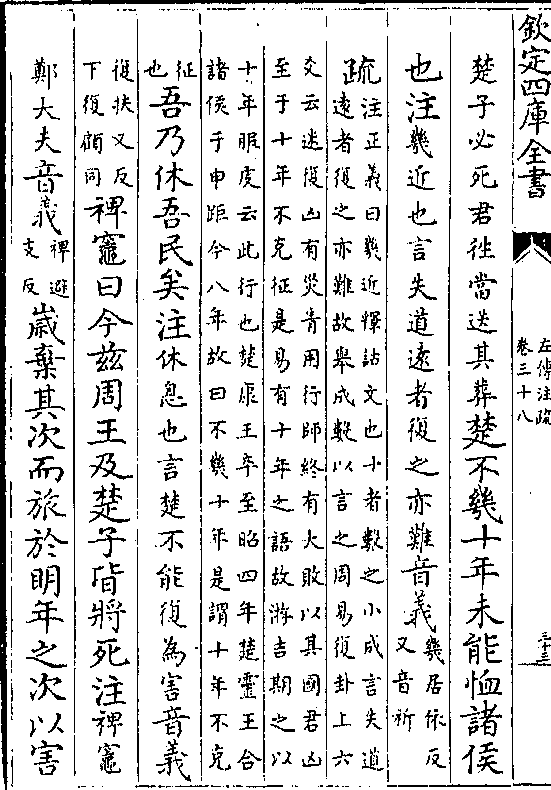 欽定四庫全書
左傳注疏
卷三十八
三十三
楚子必死君徃當送其葬楚不幾十年未能恤諸侯
也注幾近也言失道遠者復之亦難音義幾居依反
又音祈
疏注正義曰幾近釋詁文也十者數之小成言失道
遠者復之亦難故舉成數以言之周易復卦上六
爻云迷復凶有災眚用行師終有大敗以其國君凶
至于十年不克征是易有十年之語故游吉期之以
十年服虔云此行也楚康王卒至昭四年楚靈王合
諸侯于申距今八年故曰不幾十年是謂十年不克
征
也吾乃休吾民矣注休息也言楚不能復為害音義
復扶又反
下復顧同裨竈曰今兹周王及楚子皆將死注裨竈
鄭大夫音義裨避
支反歲棄其次而旅於明年之次以害